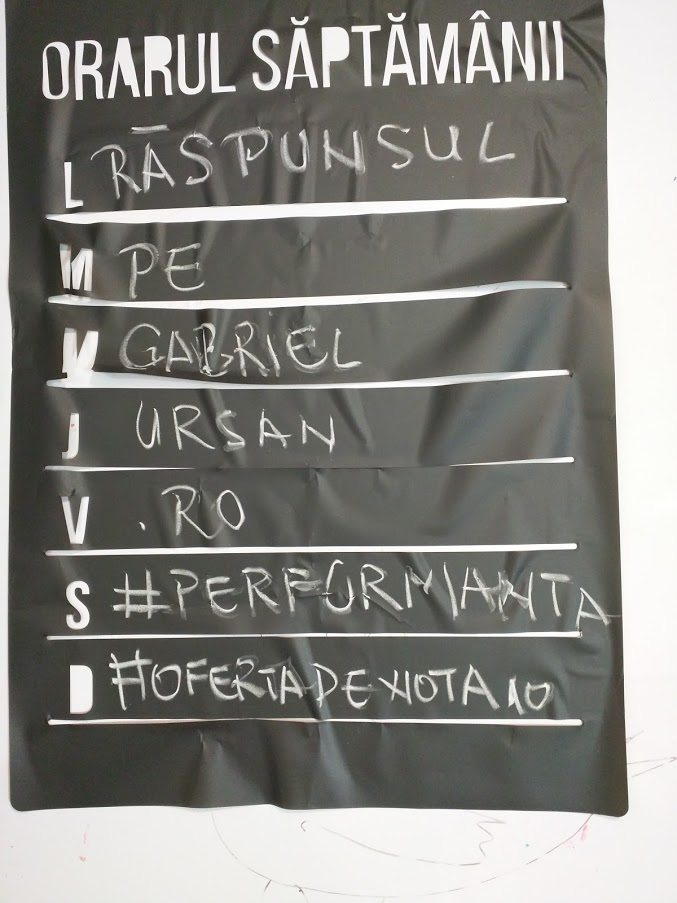 ORARUL SĂPTĂMÂNII
L RĂSPUNSUL
M PE
M GABRIEL
J URSAN
V .RO
S #PERFORMANTA
D #OFERTADENOTA10